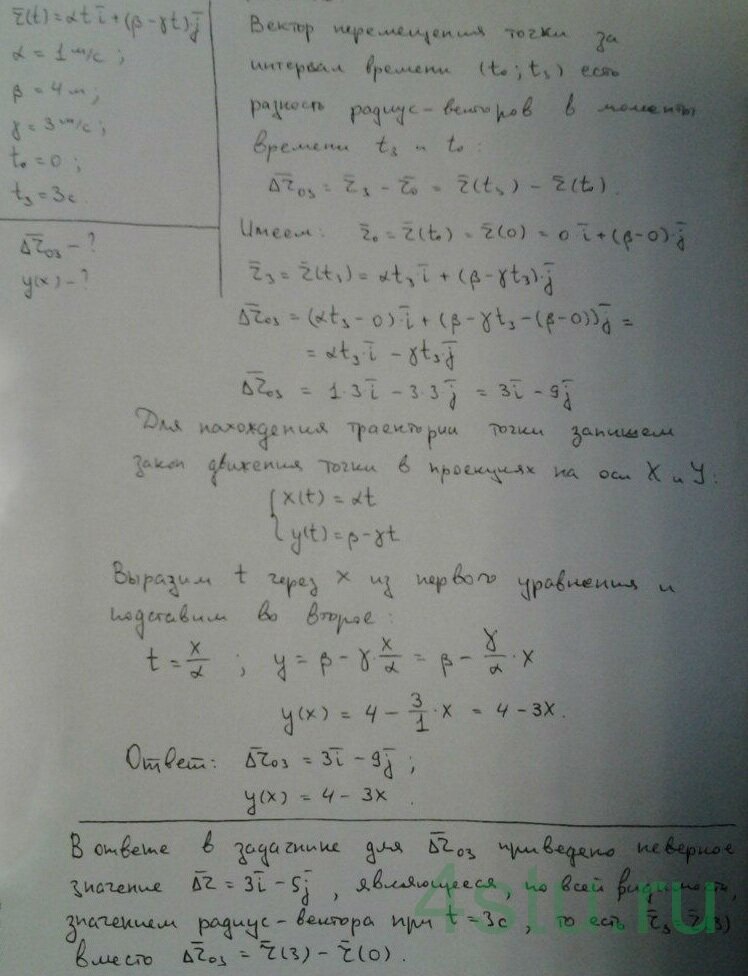 r̄(t) = αt ī + (β - γt) j̄
α = 1 м/с ;
β = 4 м ;
γ = 3 м/с ;
t₀ = 0 ;
t₃ = 3с
Δr̄₀₃ - ?
y(x) - ?
Вектор перемещения точки за
интервал времени (t₀ ; t₃) есть
разность радиус-векторов в моменты
времени t₃ и t₀ :
Δr̄₀₃ = r̄₃ - r̄₀ = r̄(t₃) - r̄(t₀).
Имеем: r̄₀ = r̄(t₀) = r̄(0) = 0 ī + (β-0)·j̄
r̄₃ = r̄(t₃) = αt₃ ī + (β - γt₃)·j̄
Δr̄₀₃ = (αt₃ - 0)·ī + (β - γt₃ - (β-0))j̄ =
= αt₃·ī - γt₃j̄
Δr̄₀₃ = 1·3ī - 3·3j̄ = 3ī - 9j̄
Для нахождения траектории точки запишем
закон движения точки в проекциях на оси X и Y:
{ x(t) = αt
y(t) = β - γt
Выразим t через x из первого уравнения и
подставим во второе:
t = x/α ; y = β - γ·x/α = β - γ/α · x
y(x) = 4 - 3/1 ·x = 4 - 3x.
Ответ: Δr̄₀₃ = 3ī - 9j̄ ;
y(x) = 4 - 3x .
В ответе в задачнике для Δr̄₀₃ приведено неверное
значение Δr̄ = 3ī - 5j̄ , являющееся, по всей видимости,
значением радиус-вектора при t = 3с , то есть r̄₃ r̄(3)
вместо Δr̄₀₃ = r̄(3) - r̄(0) .
4stu.ru